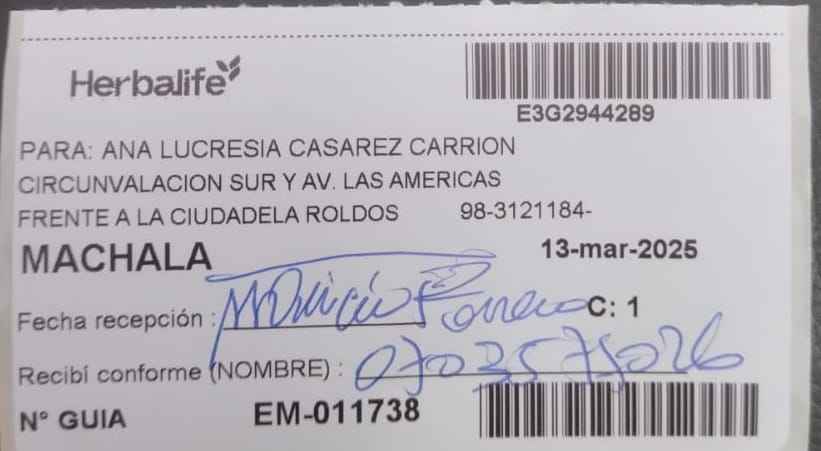 Herbalife
E3G2944289
PARA: ANA LUCRESIA CASAREZ CARRION
CIRCUNVALACION SUR Y AV. LAS AMERICAS
FRENTE A LA CIUDADELA ROLDOS 98-3121184-
MACHALA 13-mar-2025
Fecha recepción : C: 1
Recibí conforme (NOMBRE) :
Nº GUIA EM-011738